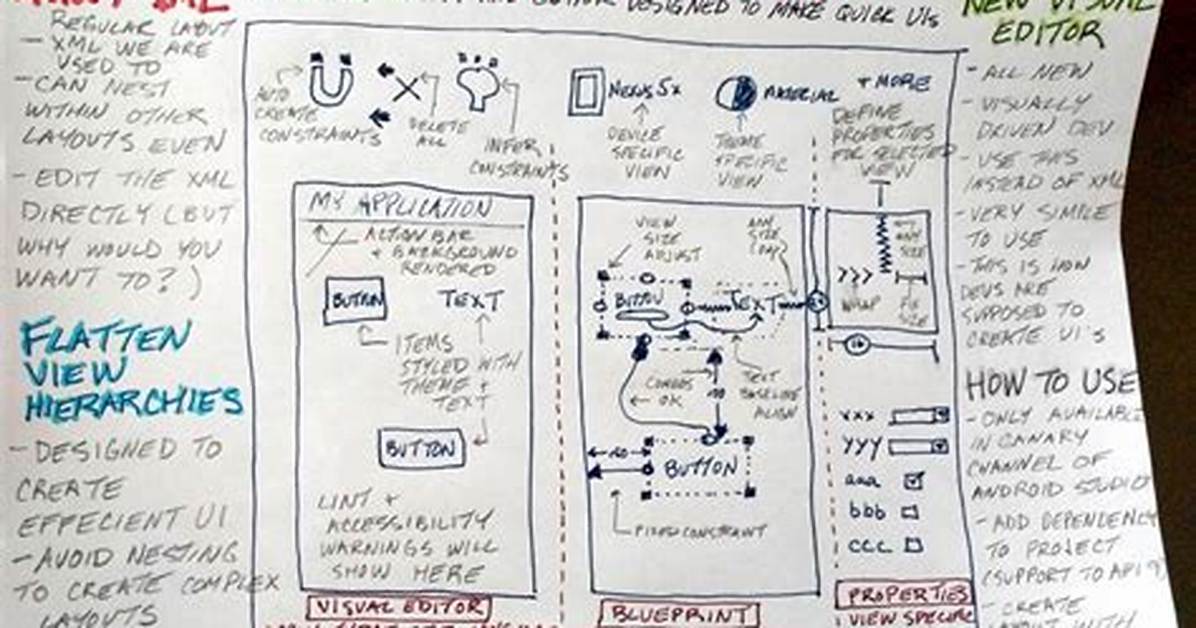 EDITOR DESIGNED TO MAKE QUICK UIs
REGULAR LAYOUT
- XML WE ARE
USED TO
- CAN NEST
WITHIN OTHER
LAYOUTS EVEN
- EDIT THE XML
DIRECTLY (BUT
WHY WOULD YOU
WANT TO?)
FLATTEN
VIEW
HIERARCHIES
- DESIGNED TO
CREATE
EFFECIENT UI
- AVOID NESTING
TO CREATE COMPLEX
LAYOUTS
AUTO
CREATE
CONSTRAINTS
DELETE
ALL
INFER
CONSTRAINTS
NEXUS 5x
DEVICE
SPECIFIC
VIEW
MATERIAL
THEME
SPECIFIC
VIEW
+ MORE
DEFINE
PROPERTIES
FOR SELECTED
VIEW
MY APPLICATION
ACTION BAR
+ BACKGROUND
RENDERED
BUTTON
TEXT
ITEMS
STYLED WITH
THEME +
TEXT
BUTTON
LINT +
ACCESSIBILITY
WARNINGS WILL
SHOW HERE
VISUAL EDITOR
VIEW
SIZE
ADJUST
ANY
SIZE
BUTTON
TEXT
OK
TEXT
BASELINE
ALIGN
BUTTON
FIXED CONSTRAINT
BLUEPRINT
ANY
SIZE
>>>
WRAP
FIX
SIZE
16
xxx
yyy
aaa
bbb
ccc
PROPERTIES
VIEW SPECIFIC
NEW VISUAL
EDITOR
- ALL NEW
- VISUALLY
DRIVEN DEV
- USE THIS
INSTEAD OF XML
- VERY SIMPLE
TO USE
- THIS IS HOW
DEVS ARE
SUPPOSED TO
CREATE UI's
HOW TO USE
- ONLY AVAILABLE
IN CANARY
CHANNEL OF
ANDROID STUDIO
- ADD DEPENDENCY
TO PROJECT
(SUPPORT TO API 9)
- CREATE
LAYOUT WITH